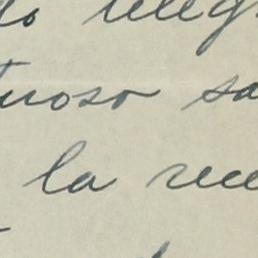 do teleg
tuoso sa
la rece